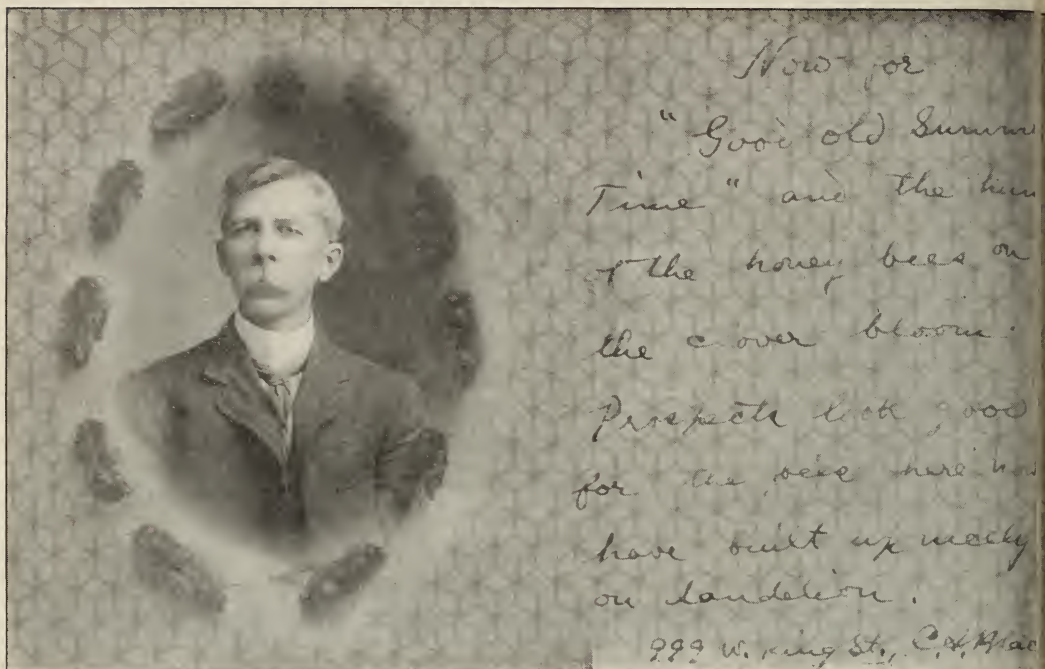 Now for
"Good old Summ
Time" and the hum
of the honey bees on
the clover bloom.
Prospects look good
for the bees here now
have built up nicely
on dandelion.
999 W. King St., C.